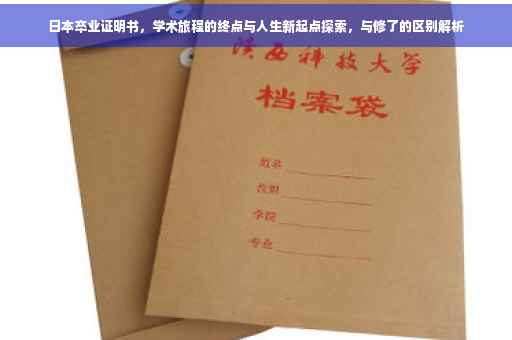 日本卒业证明书，学术旅程的终点与人生新起点探索，与修了的区别解析
陕西科技大学
档案袋
姓名
学院
专业